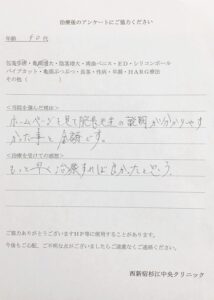 治療後のアンケートにご協力ください
年齢 40代
包茎手術・亀頭増大・陰茎増大・両曲ペニス・ED・シリコンボール
パイプカット・亀頭ぶつぶつ・長茎・性病・早漏・HARG療法
その他(
<当院を選んだ理由は>
ホームページを見て院長先生の説明が分かりやす
かった事と金額です。
<治療を受けての感想>
もっと早く治療すれば良かったと思う。
ご協力ありがとうございますHP等に使用することがあります。
今後もご心配、ご不明な点がございましたらご遠慮なくご連絡ください。
西新宿杉江中央クリニック